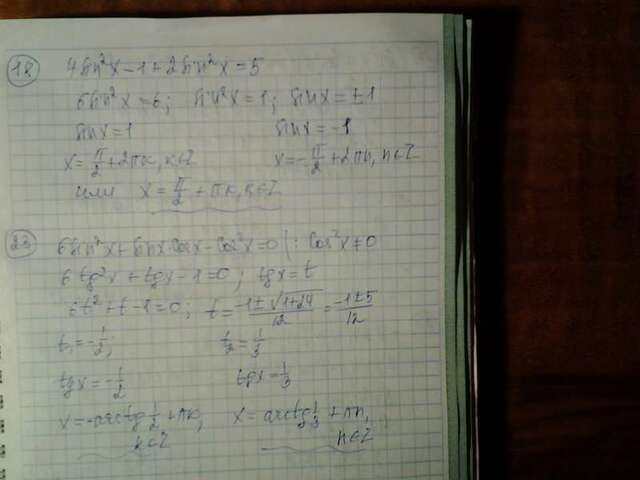 18 4sin²x-1+2sin²x=5
6sin²x=6; sin²x=1; sinx=±1
sinx=1 sinx=-1
x=π/2+2πk, k∈Z x=-π/2+2πn, n∈Z
или x=π/2+πk, k∈Z
23 6sin²x+sinx cosx-cos²x=0 |: cos²x≠0
6tg²x+tgx-1=0; tgx=t
6t²+t-1=0; t=(-1±√(1+24))/12=(-1±5)/12
t₁=-1/2; t₂=1/3
tgx=-1/2 tgx=1/3
x=-arctg 1/2+πk, x=arctg 1/3+πn,
k∈Z n∈Z